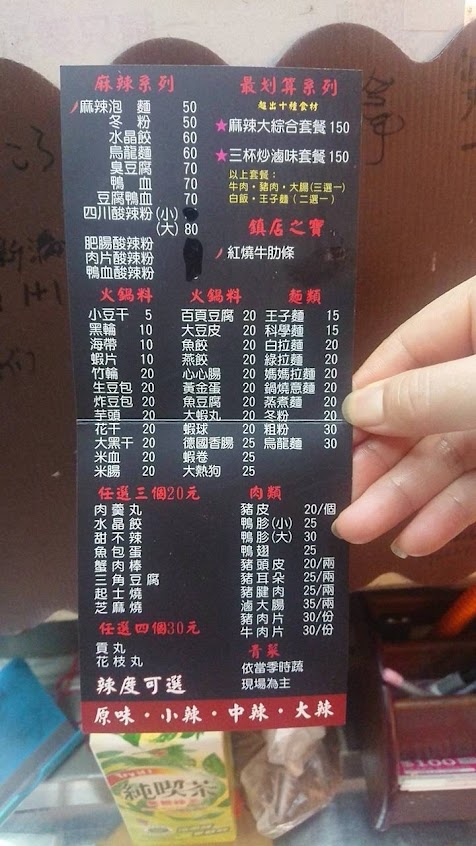 麻辣系列
麻辣泡麵 50
冬粉 50
水晶餃 60
烏龍麵 60
臭豆腐 70
鴨血 70
豆腐鴨血 70
四川酸辣粉(小)
(大) 80
肥腸酸辣粉
肉片酸辣粉
鴨血酸辣粉
最划算系列
超出十種食材
★麻辣大綜合套餐 150
★三杯炒滷味套餐 150
以上套餐：
牛肉・豬肉・大腸(三選一)
白飯・王子麵(二選一)
鎮店之寶
紅燒牛肋條
火鍋料
小豆干 5
黑輪 10
海帶 10
蝦片 10
竹輪 20
生豆包 20
炸豆包 20
芋頭 20
花干 20
大黑干 20
米血 20
米腸 20
火鍋料
百頁豆腐 20
大豆皮 20
魚餃 20
燕餃 20
心心腸 20
黃金蛋 20
魚豆腐 20
大蝦丸 20
蝦球 20
德國香腸 25
蝦卷 25
大熱狗 25
麵類
王子麵 15
科學麵 15
白拉麵 20
綠拉麵 20
媽媽拉麵 20
鍋燒意麵 20
蒸煮麵 20
冬粉 20
粗粉 30
烏龍麵 30
任選三個20元
肉羹丸
水晶餃
甜不辣
魚包蛋
蟹肉棒
三角豆腐
起士燒
芝麻燒
任選四個30元
貢丸
花枝丸
肉類
豬皮 20/個
鴨胗(小) 25
鴨胗(大) 30
鴨翅 25
豬頭皮 20/兩
豬耳朵 25/兩
豬腱肉 25/兩
滷大腸 35/兩
豬肉片 30/份
牛肉片 30/份
青菜
依當季時蔬
現場為主
辣度可選
原味・小辣・中辣・大辣
純喫茶
$100